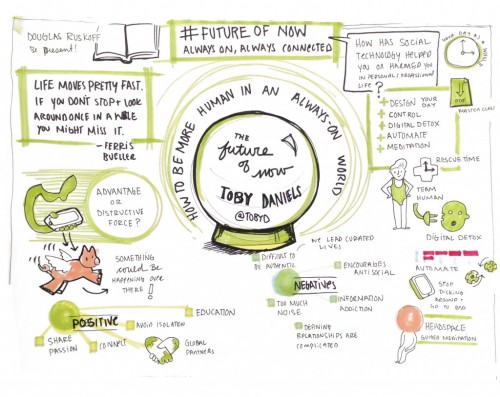 DOUGLAS RUSKOFF
Be present!
#FUTURE OF NOW
ALWAYS ON, ALWAYS CONNECTED
LIFE MOVES PRETTY FAST.
IF YOU DON'T STOP + LOOK
AROUND ONCE IN A WHILE
YOU MIGHT MISS IT.
- FERRIS
BUELLER
HOW HAS SOCIAL
TECHNOLOGY HELPED
YOU OR HARMED YOU
IN PERSONAL/PROFESSIONAL
LIFE?
YOUR DAY AS A
+ DESIGN YOUR
DAY
+ CONTROL
+ DIGITAL DETOX
+ AUTOMATE
+ MEDITATION
HOW TO BE MORE HUMAN IN AN ALWAYS-ON WORLD
THE
future
of now
TOBY DANIELS
@TOBYD
ADVANTAGE
OR
DISTRUCTIVE
FORCE?
RESCUE TIME
TEAM
HUMAN
DIGITAL DETOX
SOMETHING
could BE
HAPPENING OVER
THERE!
WE LEAD CURATED
LIVES
DIFFICULT TO
BE AUTHENTIC
ENCOURAGES
ANTISOCIAL
NEGATIVES
TOO MUCH
NOISE
INFORMATION
ADDICTION
DEFINING
RELATIONSHIPS ARE
COMPLICATED
POSITIVE
EDUCATION
AVOID ISOLATION
SHARE
PASSION
CONNECT
GLOBAL
PARTNERS
AUTOMATE
STOP
DICKING
AROUND +
GO TO BED
HEADSPACE
GUIDED MEDITATION